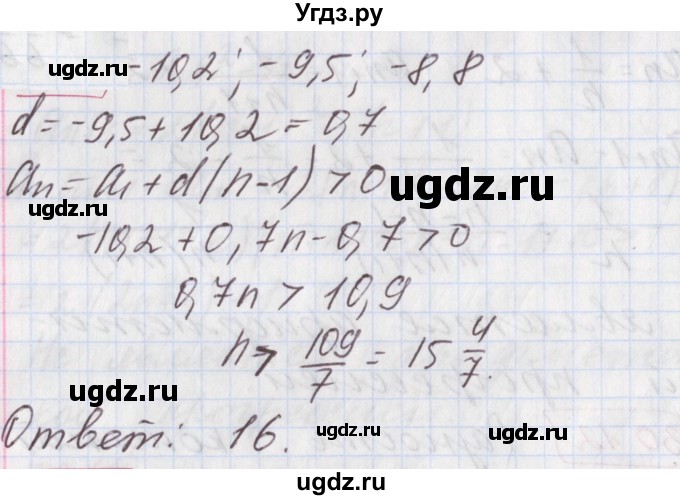 Угдз.ру
-10,2; -9,5; -8,8
d = -9,5 + 10,2 = 0,7
aₙ = a₁ + d(n-1) > 0
-10,2 + 0,7n - 0,7 > 0
0,7n > 10,9
n > 109/7 = 15 4/7.
Ответ: 16.
ugdz.ru
ugdz.ru
ugdz.ru
ugdz.ru
ugdz.ru
ugdz.ru
ugdz.ru
ugdz.ru
Угдз.ру